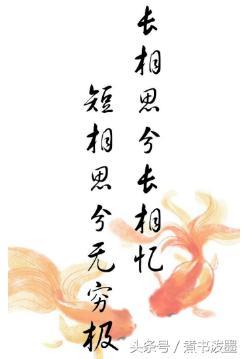 长相思兮长相忆
短相思兮无穷极
头条号／煮书泼墨